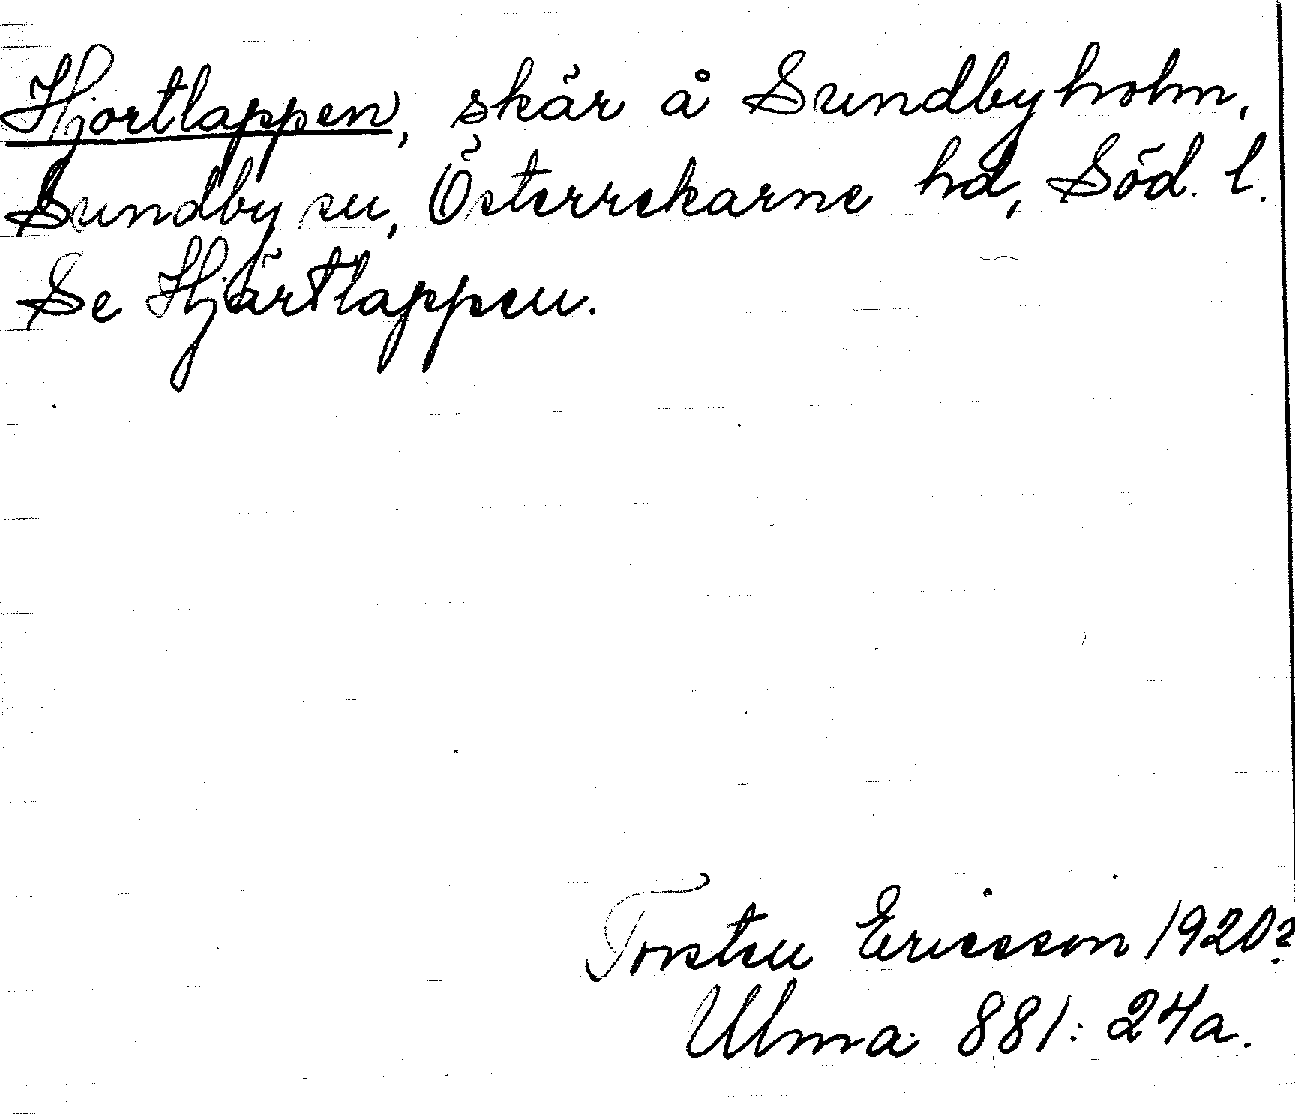 Hjortlappen, skär å Sundbyholm,
Sundby sn, Österrekarne hd, Söd. l.
Se Hjärtlappen.
Torsten Ericsson 1920?
Ulma 881: 24a.